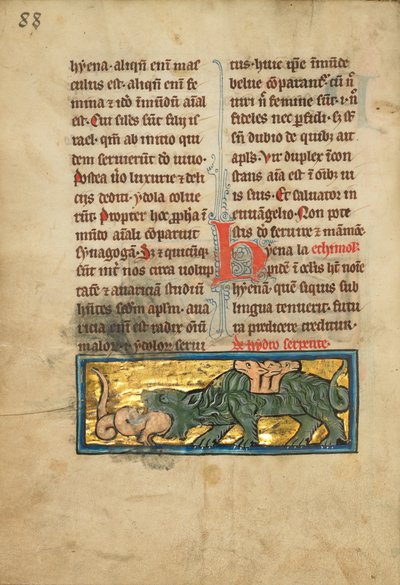 88
hyena. aliqñ eni mas
culus est. aliqñ eni fe
mina ⁊ ido inmudu aial
est. Cui siles sunt filij is
rael. qm ab initio qui
dem seruierut do uiuo.
Postea uo luxurie ⁊ deli
cijs dediti. ydola colue
rut. Propter hoc ppha i
mudo aiali coparuit
synagoga. Sz ⁊ quicuqz
sut int nos circa uolup
tate ⁊ auaricia studiu
hntes scdm aplm. aua
ricia eni est radix oniu
malor. ⁊ ydolor serui
tus. huic ipe inmude
belue coparant. cu n
uiri n femine sut. i. n
fideles nec pfidi. sz st
sn dubio de quibz ait
apls. Vir duplex icon
stans aia est i oibz ui
is suis. Et saluator in
euuangelio. Non pote
stis do seruire ⁊ mamone.
hyena la ethimol
pide i oclis hr noie
hyena. que siquis sub
lingua tenuerit. futu
ra predicere creditur.
De hydro serpente.